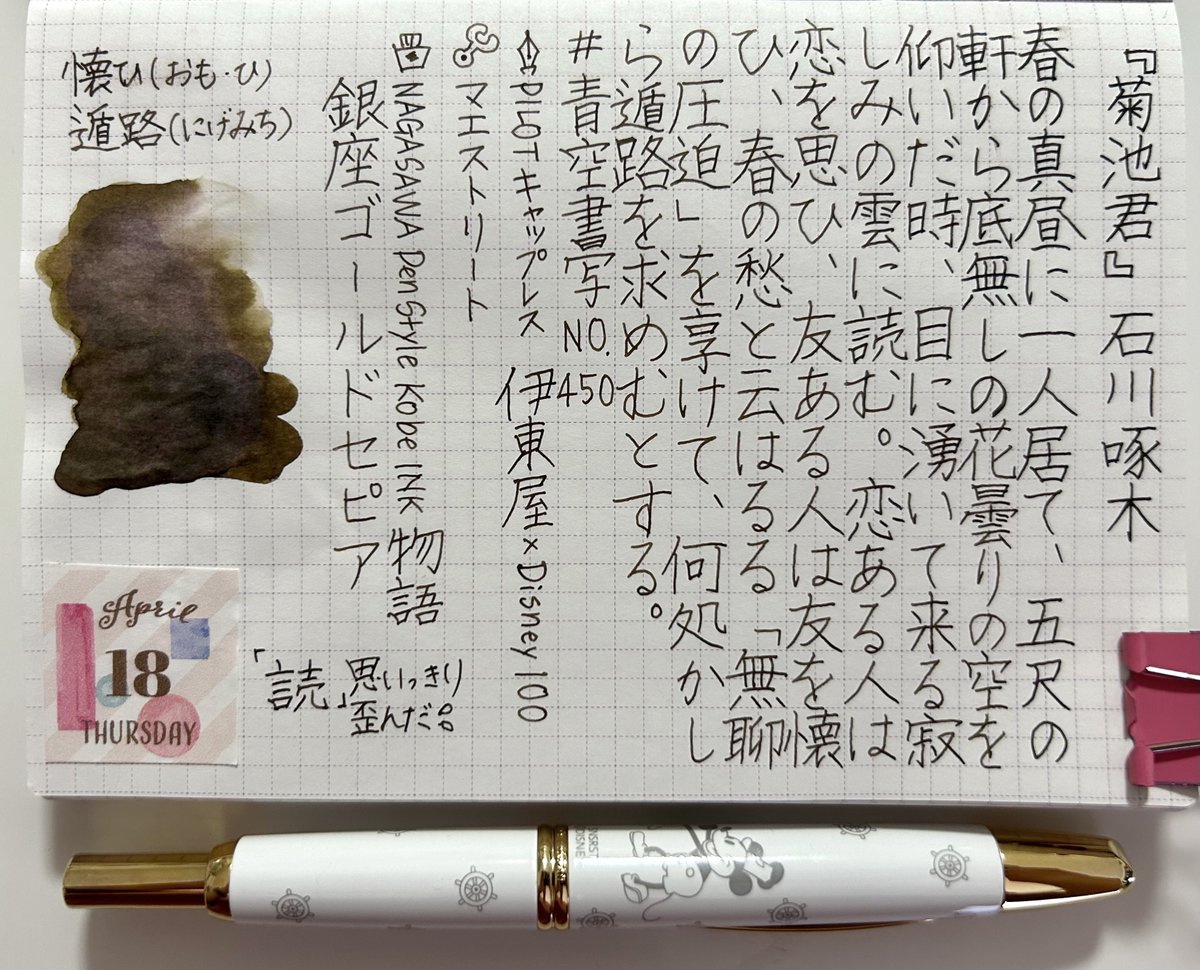 『菊池君』石川啄木
春の真昼に一人居て、五尺の
軒から底無しの花曇りの空を
仰いだ時、目に湧いて来る寂
しみの雲に読む。恋ある人は
恋を思ひ、友ある人は友を懐
ひ、春の愁と云はるる「無聊
の圧迫」を享けて、何処かし
ら遁路を求めむとする。
#青空書写NO.450
PILOTキャップレス 伊東屋×Disney100
マエストリート
NAGASAWA PenStyle Kobe INK物語
銀座ゴールドセピア
「読」思いっきり
歪んだ。。
懐ひ(おも・ひ)
遁路(にげみち)
April
18
THURSDAY